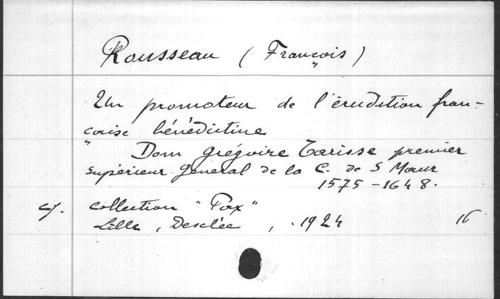 Rousseau ( François )
Un promoteur de l'érudition fran-
çaise bénédictine
Dom Grégoire Tarisse premier
supérieur général de la C. de S Maur
1575-1648.
cf. Collection "Pax"
Lille, Desclée, .1924